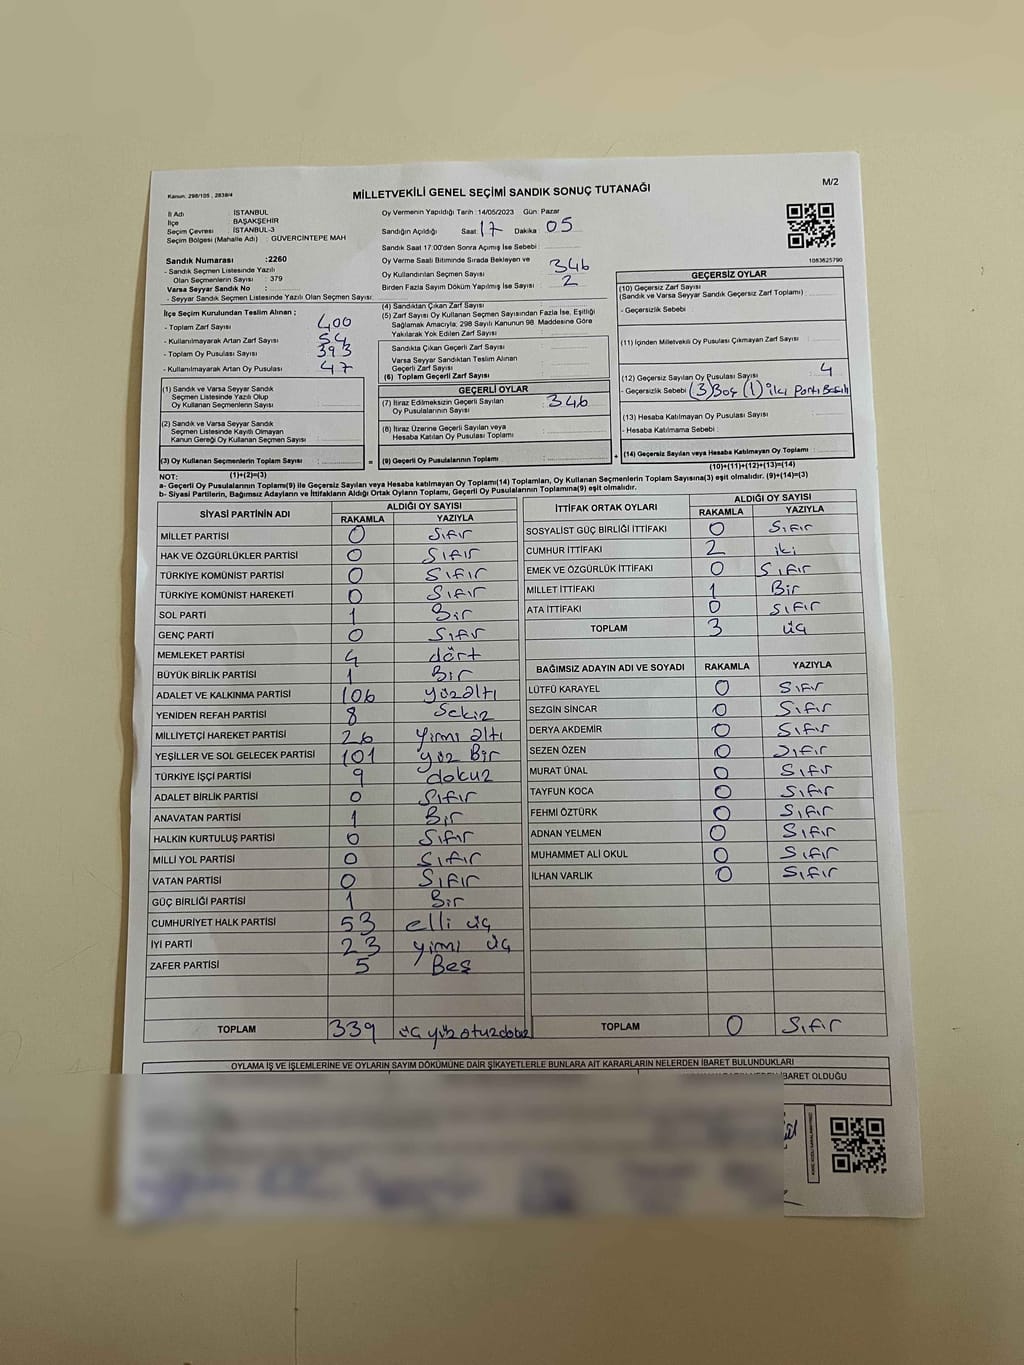 Kanun: 298/105 , 2839/4
MİLLETVEKİLİ GENEL SEÇİMİ SANDIK SONUÇ TUTANAĞI
M/2
İl Adı : İSTANBUL
İlçe : BAŞAKŞEHİR
Seçim Çevresi : İSTANBUL-3
Seçim Bölgesi (Mahalle Adı) : GÜVERCİNTEPE MAH
Sandık Numarası :2260
- Sandık Seçmen Listesinde Yazılı
Olan Seçmenlerin Sayısı : 379
Varsa Seyyar Sandık No :
- Seyyar Sandık Seçmen Listesinde Yazılı Olan Seçmen Sayısı:
İlçe Seçim Kurulundan Teslim Alınan ;
- Toplam Zarf Sayısı : 400
- Kullanılmayarak Artan Zarf Sayısı : 54
- Toplam Oy Pusulası Sayısı : 393
- Kullanılmayarak Artan Oy Pusulası : 47
(1) Sandık ve Varsa Seyyar Sandık
Seçmen Listesinde Yazılı Olup
Oy Kullanan Seçmenlerin Sayısı :
(2) Sandık ve Varsa Seyyar Sandık
Seçmen Listesinde Kayıtlı Olmayan
Kanun Gereği Oy Kullanan Seçmen Sayısı :
(3) Oy Kullanan Seçmenlerin Toplam Sayısı :
(1)+(2)=(3)
Oy Vermenin Yapıldığı Tarih : 14/05/2023 Gün: Pazar
Sandığın Açıldığı Saat : 17 Dakika : 05
Sandık Saat 17:00'den Sonra Açımış İse Sebebi :
Oy Verme Saati Bitiminde Sırada Bekleyen ve
Oy Kullandırılan Seçmen Sayısı : 346
Birden Fazla Sayım Döküm Yapılmış İse Sayısı : 2
(4) Sandıktan Çıkan Zarf Sayısı :
(5) Zarf Sayısı Oy Kullanan Seçmen Sayısından Fazla İse, Eşitliği
Sağlamak Amacıyla; 298 Sayılı Kanunun 98. Maddesine Göre
Yakılarak Yok Edilen Zarf Sayısı :
Sandıkta Çıkan Geçerli Zarf Sayısı :
Varsa Seyyar Sandıktan Teslim Alınan
Geçerli Zarf Sayısı :
(6) Toplam Geçerli Zarf Sayısı :
GEÇERLİ OYLAR
(7) İtiraz Edilmeksizin Geçerli Sayılan
Oy Pusulalarının Sayısı : 346
(8) İtiraz Üzerine Geçerli Sayılan veya
Hesaba Katılan Oy Pusulası Toplamı :
= (9) Geçerli Oy Pusulalarının Toplamı :
1083625790
GEÇERSİZ OYLAR
(10) Geçersiz Zarf Sayısı
(Sandık ve Varsa Seyyar Sandık Geçersiz Zarf Toplamı) :
- Geçersizlik Sebebi :
(11) İçinden Milletvekili Oy Pusulası Çıkmayan Zarf Sayısı :
(12) Geçersiz Sayılan Oy Pusulası Sayısı : 4
- Geçersizlik Sebebi : (3) Boş (1) iki Parti Basılı
(13) Hesaba Katılmayan Oy Pusulası Sayısı :
- Hesaba Katılmama Sebebi :
+ (14) Geçersiz Sayılan veya Hesaba Katılmayan Oy Toplamı :
(10)+(11)+(12)+(13)=(14)
NOT:
a- Geçerli Oy Pusulalarının Toplamı(9) ile Geçersiz Sayılan veya Hesaba katılmayan Oy Toplamı(14) Toplamları, Oy Kullanan Seçmenlerin Toplam Sayısına(3) eşit olmalıdır. (9)+(14)=(3)
b- Siyasi Partilerin, Bağımsız Adayların ve İttifakların Aldığı Ortak Oyların Toplamı, Geçerli Oy Pusulalarının Toplamına(9) eşit olmalıdır.
SİYASİ PARTİNİN ADI ALDIĞI OY SAYISI
RAKAMLA YAZIYLA
MİLLET PARTİSİ 0 Sıfır
HAK VE ÖZGÜRLÜKLER PARTİSİ 0 Sıfır
TÜRKİYE KOMÜNİST PARTİSİ 0 Sıfır
TÜRKİYE KOMÜNİST HAREKETİ 0 Sıfır
SOL PARTİ 1 Bir
GENÇ PARTİ 0 Sıfır
MEMLEKET PARTİSİ 4 dört
BÜYÜK BİRLİK PARTİSİ 1 Bir
ADALET VE KALKINMA PARTİSİ 106 yüzaltı
YENİDEN REFAH PARTİSİ 8 Sekiz
MİLLİYETÇİ HAREKET PARTİSİ 26 yirmi altı
YEŞİLLER VE SOL GELECEK PARTİSİ 101 yüz Bir
TÜRKİYE İŞÇİ PARTİSİ 9 dokuz
ADALET BİRLİK PARTİSİ 0 Sıfır
ANAVATAN PARTİSİ 1 Bir
HALKIN KURTULUŞ PARTİSİ 0 Sıfır
MİLLİ YOL PARTİSİ 0 Sıfır
VATAN PARTİSİ 0 Sıfır
GÜÇ BİRLİĞİ PARTİSİ 1 Bir
CUMHURİYET HALK PARTİSİ 53 elli üç
İYİ PARTİ 23 yirmi üç
ZAFER PARTİSİ 5 Beş
TOPLAM 339 üç yüz otuz dokuz
İTTİFAK ORTAK OYLARI ALDIĞI OY SAYISI
RAKAMLA YAZIYLA
SOSYALİST GÜÇ BİRLİĞİ İTTİFAKI 0 Sıfır
CUMHUR İTTİFAKI 2 iki
EMEK VE ÖZGÜRLÜK İTTİFAKI 0 Sıfır
MİLLET İTTİFAKI 1 Bir
ATA İTTİFAKI 0 Sıfır
TOPLAM 3 üç
BAĞIMSIZ ADAYIN ADI VE SOYADI RAKAMLA YAZIYLA
LÜTFÜ KARAYEL 0 Sıfır
SEZGİN SİNCAR 0 Sıfır
DERYA AKDEMİR 0 Sıfır
SEZEN ÖZEN 0 Sıfır
MURAT ÜNAL 0 Sıfır
TAYFUN KOCA 0 Sıfır
FEHMİ ÖZTÜRK 0 Sıfır
ADNAN YELMEN 0 Sıfır
MUHAMMET ALİ OKUL 0 Sıfır
İLHAN VARLIK 0 Sıfır
TOPLAM 0 Sıfır
OYLAMA İŞ VE İŞLEMLERİNE VE OYLARIN SAYIM DÖKÜMÜNE DAİR ŞİKAYETLERLE BUNLARA AİT KARARLARIN NELERDEN İBARET BULUNDUKLARI
İBARET OLDUĞU